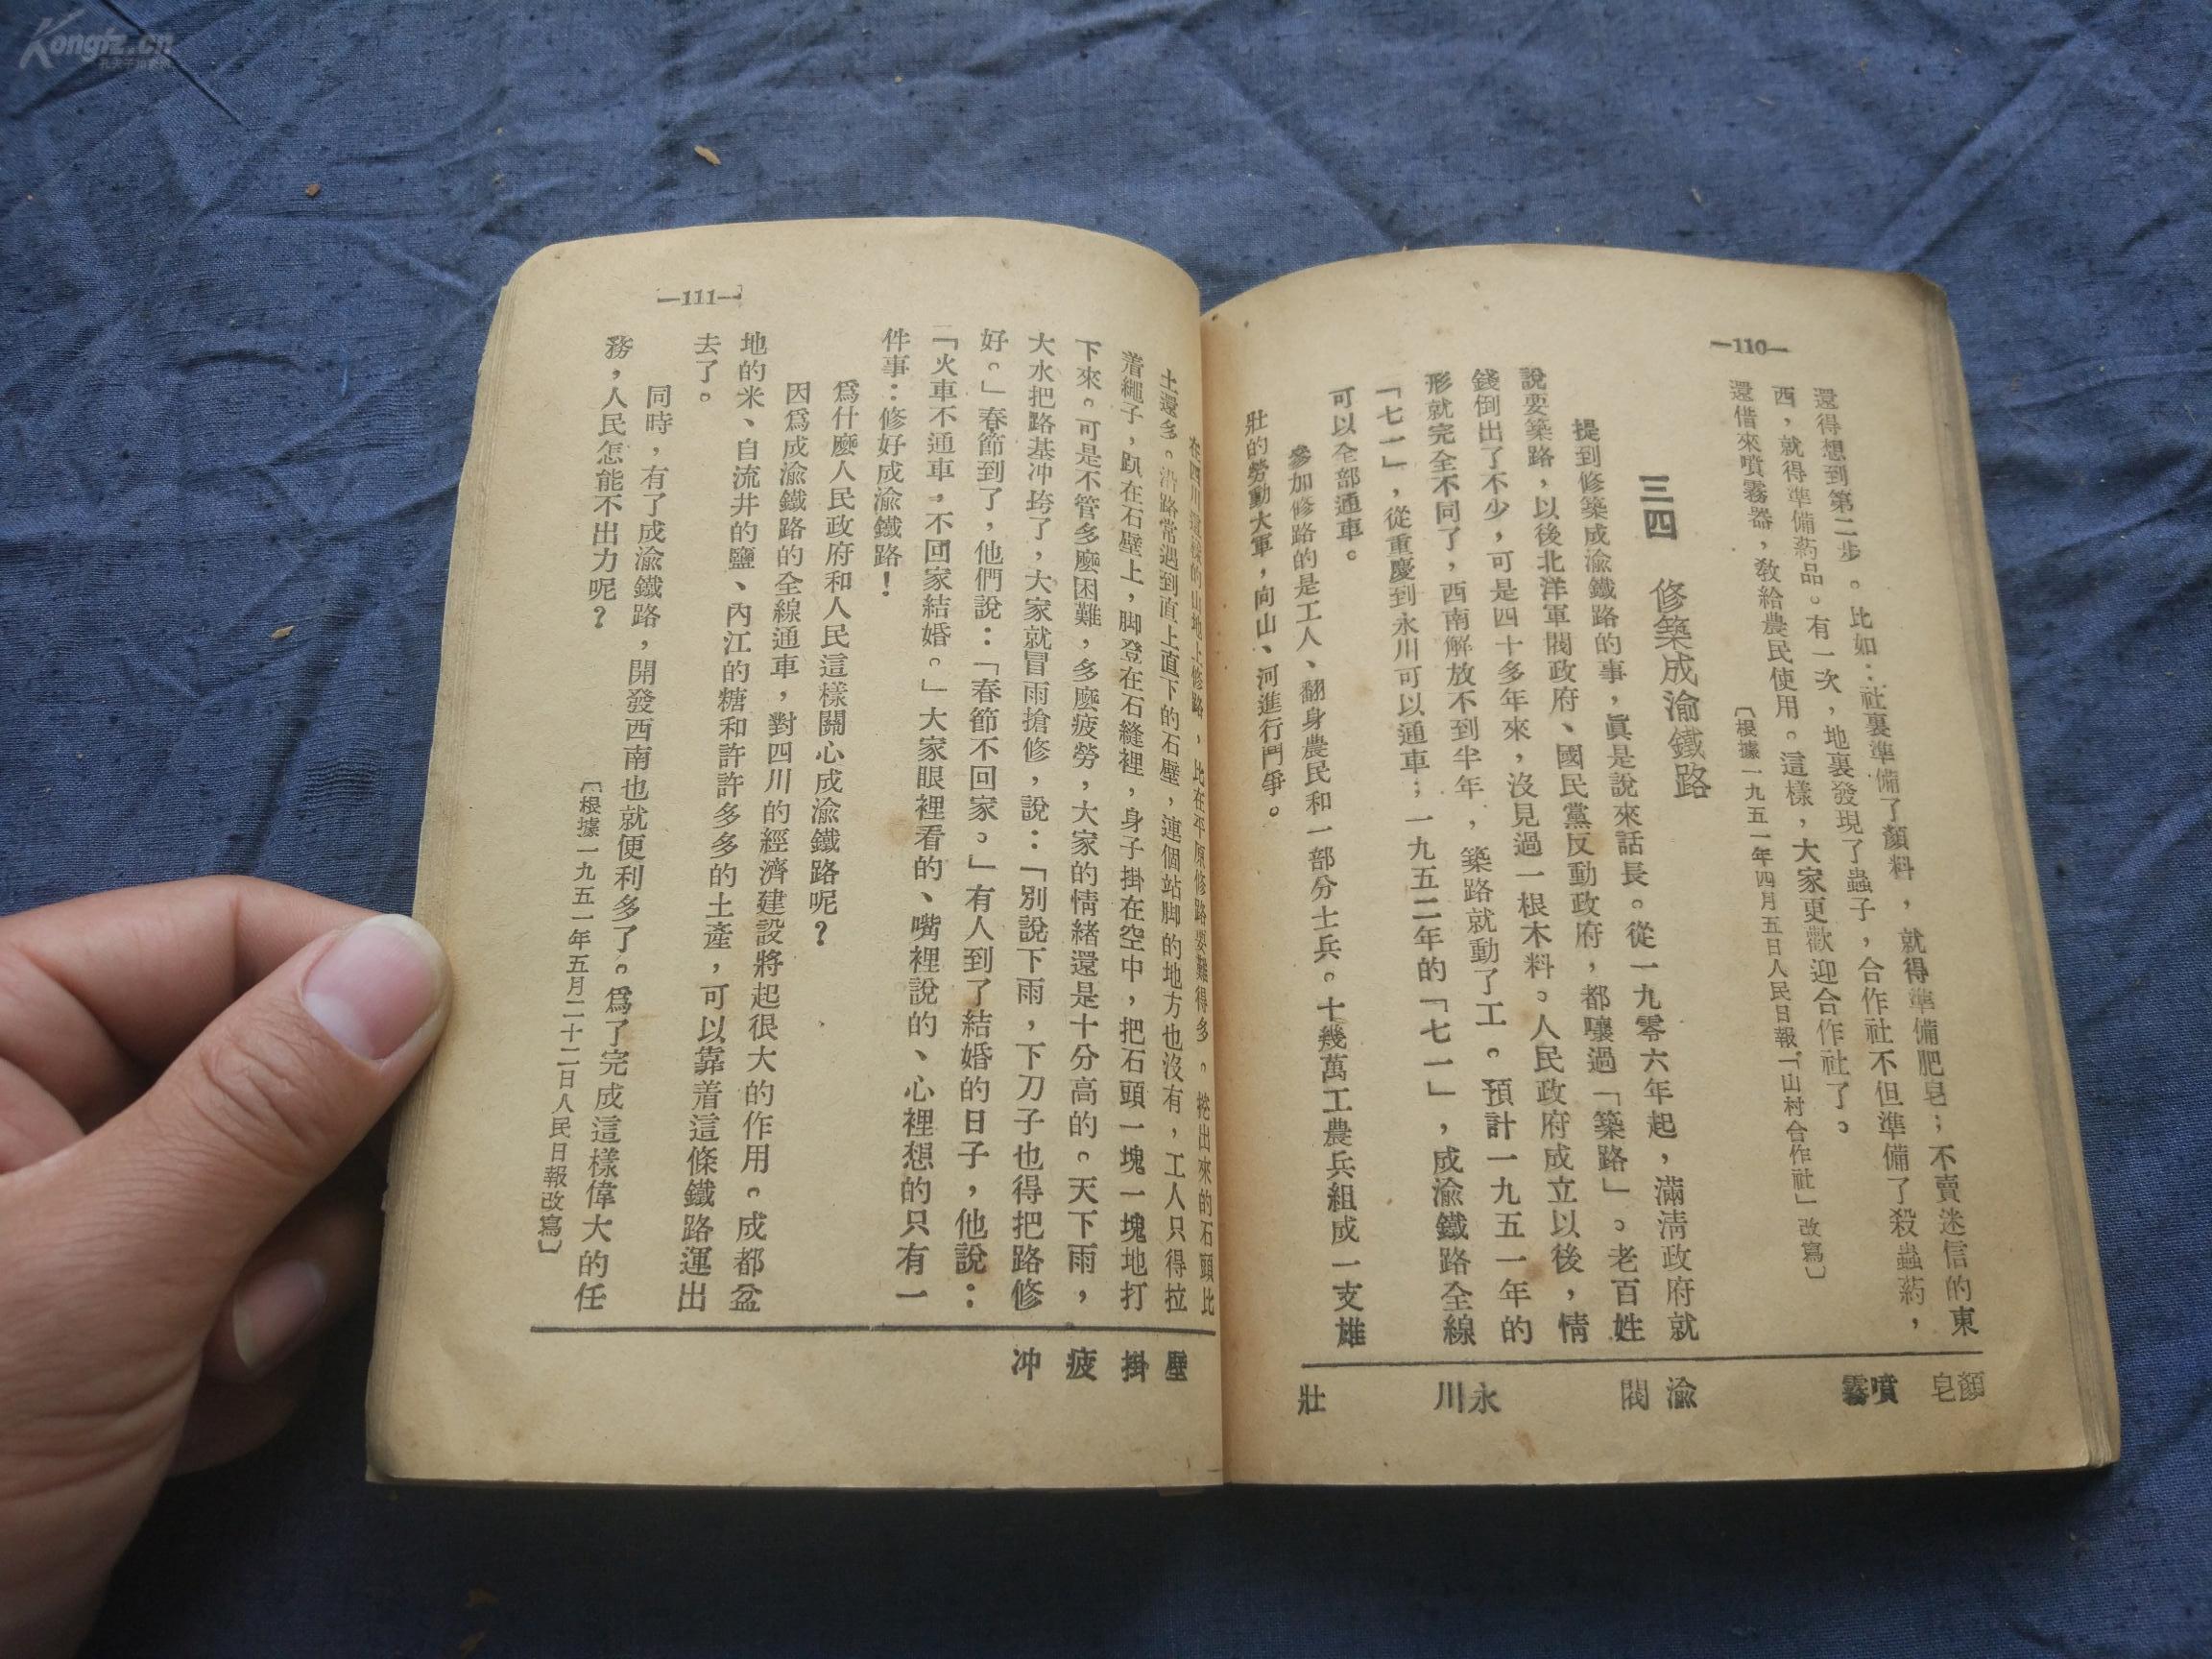 Kongfz.cn
—110—
還得想到第二步。比如：社裏準備了顏料，就得準備肥皂；不賣迷信的東
西，就得準備葯品。有一次，地裏發現了蟲子，合作社不但準備了殺蟲葯，
還借來噴霧器，敎給農民使用。這樣，大家更歡迎合作社了。
〔根據一九五一年四月五日人民日報「山村合作社」改寫〕
三四　修築成渝鐵路
提到修築成渝鐵路的事，眞是說來話長。從一九零六年起，滿淸政府就
說要築路，以後北洋軍閥政府、國民黨反動政府，都嚷過「築路」。老百姓
錢倒出了不少，可是四十多年來，沒見過一根木料。人民政府成立以後，情
形就完全不同了，西南解放不到半年，築路就動了工。預計一九五一年的
「七一」，從重慶到永川可以通車；一九五二年的「七一」，成渝鐵路全線
可以全部通車。
參加修路的是工人、翻身農民和一部分士兵。十幾萬工農兵組成一支雄
壯的勞動大軍，向山、河進行鬥爭。
顏皂
噴霧
渝
閥
永川
壯
—111—
在四川這樣的山地上修路，比在平原修路要難得多。挖出來的石頭比
土還多。沿路常遇到直上直下的石壁，連個站脚的地方也沒有，工人只得拉
着繩子，趴在石壁上，脚登在石縫裡，身子掛在空中，把石頭一塊一塊地打
下來。可是不管多麽困難，多麽疲勞，大家的情緒還是十分高的。天下雨，
大水把路基冲垮了，大家就冒雨搶修，說：「別說下雨，下刀子也得把路修
好。」春節到了，他們說：「春節不回家。」有人到了結婚的日子，他說：
「火車不通車，不回家結婚。」大家眼裡看的、嘴裡說的、心裡想的只有一
件事：修好成渝鐵路！
爲什麽人民政府和人民這樣關心成渝鐵路呢？
因爲成渝鐵路的全線通車，對四川的經濟建設將起很大的作用。成都盆
地的米、自流井的鹽、內江的糖和許許多多的土產，可以靠着這條鐵路運出
去了。
同時，有了成渝鐵路，開發西南也就便利多了。爲了完成這樣偉大的任
務，人民怎能不出力呢？
〔根據一九五一年五月二十二日人民日報改寫〕
壁
掛
疲
冲